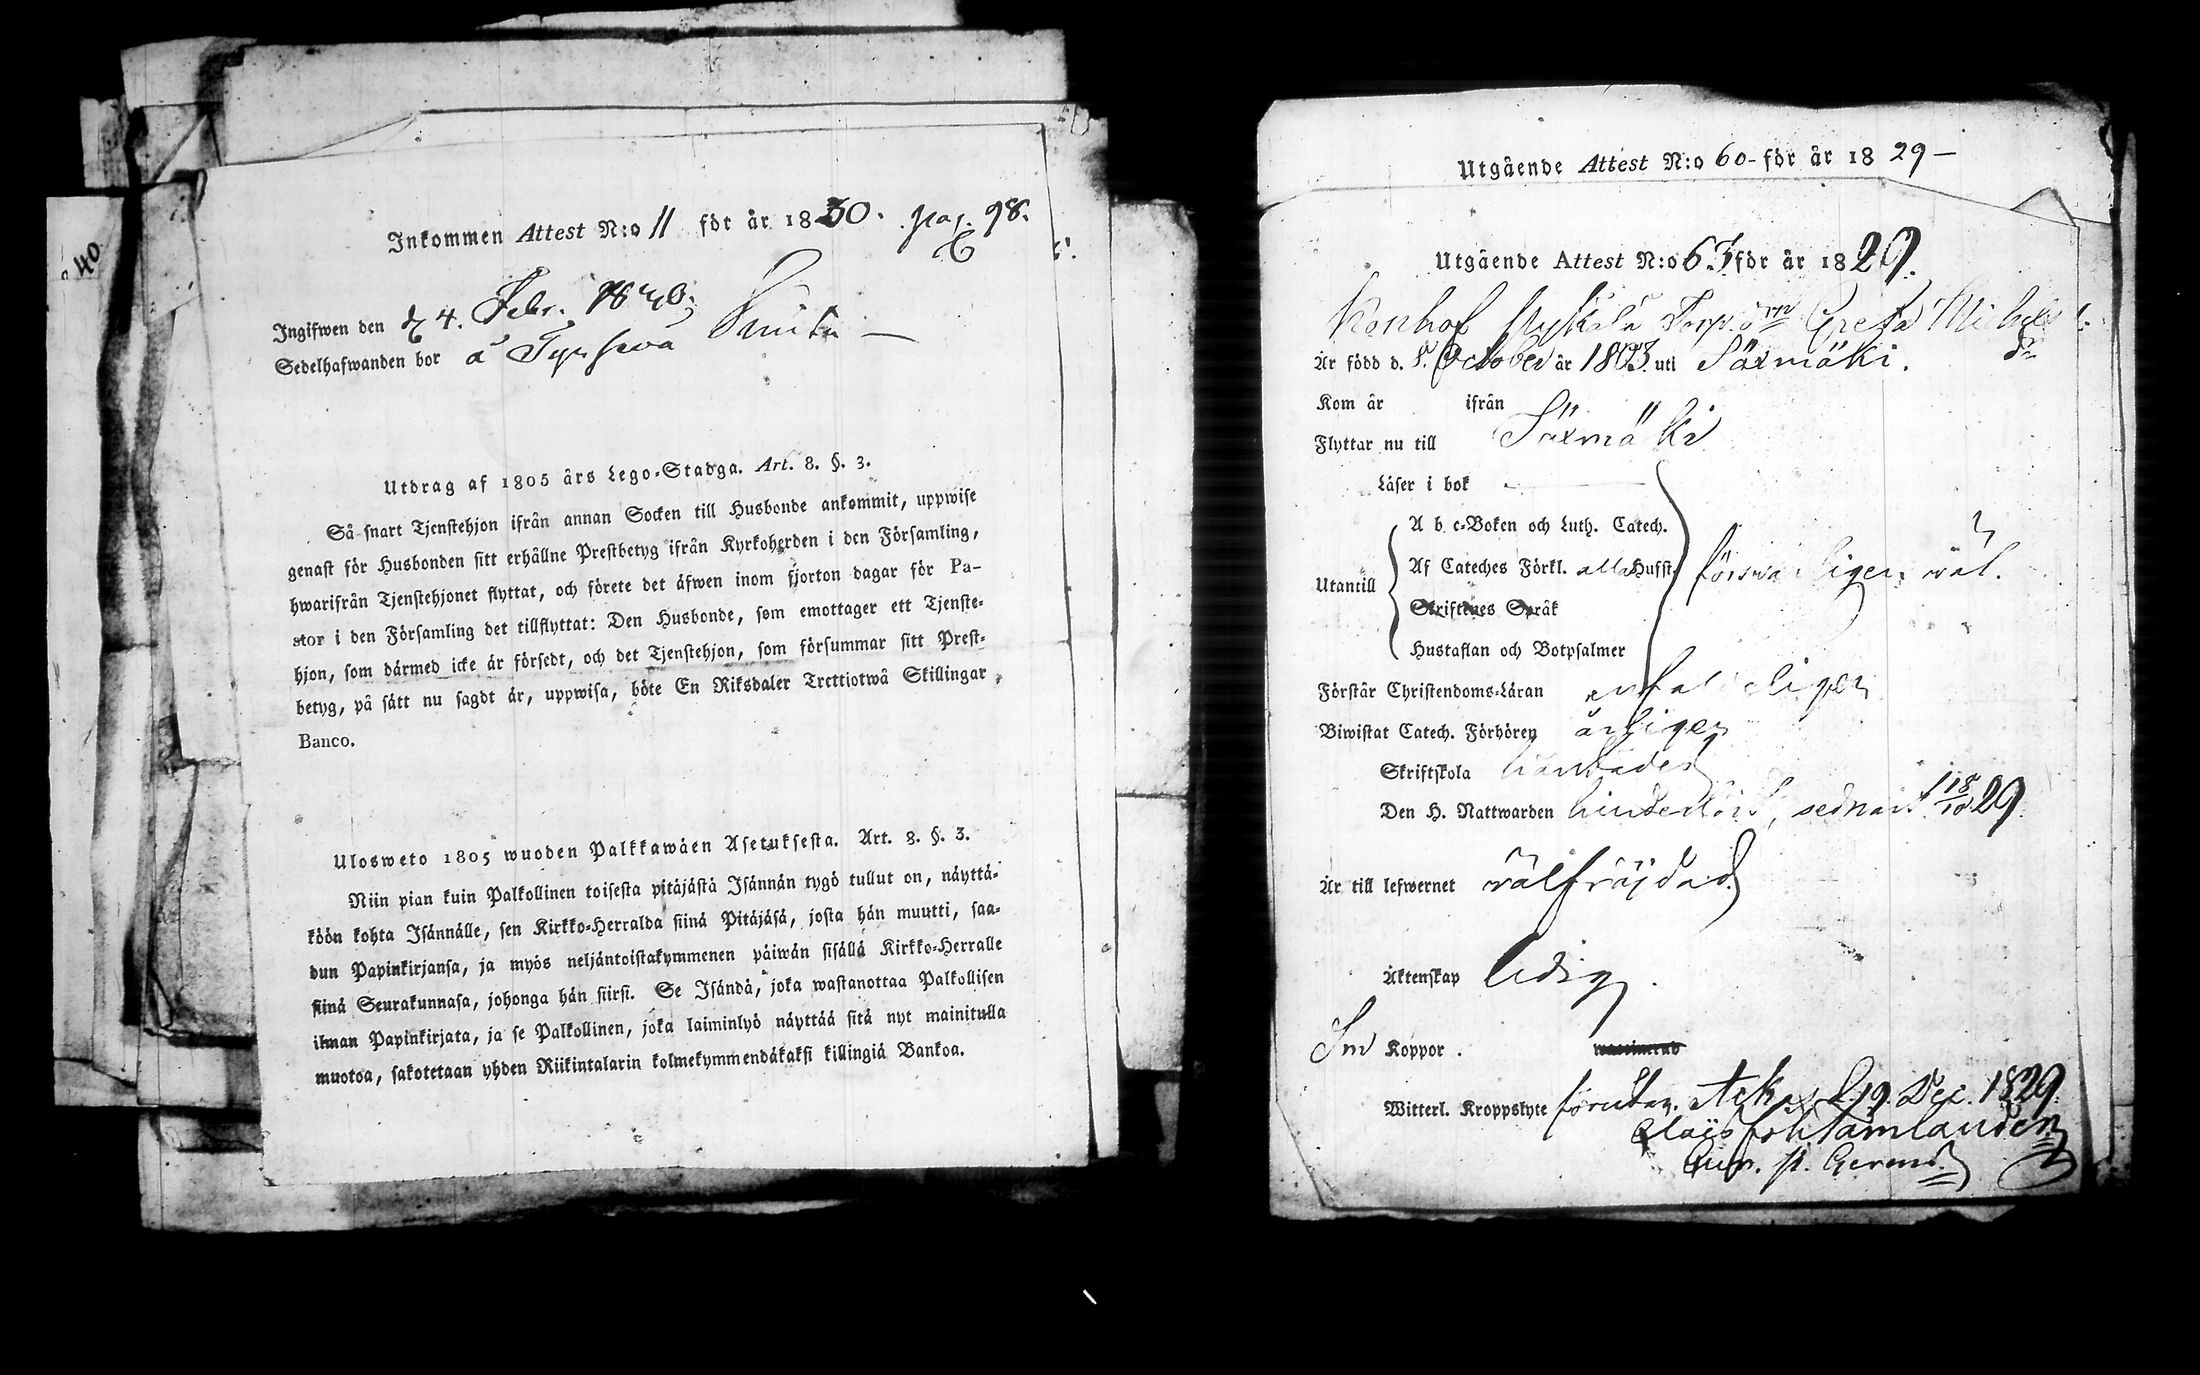 40
Inkommen Attest N:o 11 för år 1830. pag. 98.
Ingifwen den d 4. Febr. 1830.
Sedelhafwanden bor å
Utdrag af 1805 års Lego-Stadga. Art. 8. §. 3.
Så snart Tjenstehjon ifrån annan Socken till Husbonde ankommit, uppwise
genast för Husbonden sitt erhållne Prestbetyg ifrån Kyrkoherden i den Församling,
hwarifrån Tjenstehjonet flyttat, och förete det äfwen inom fjorton dagar för Pa-
stor i den Församling det tillflyttat: Den Husbonde, som emottager ett Tjenste-
hjon, som därmed icke är försedt, och det Tjenstehjon, som försummar sitt Prest-
betyg, på sätt nu sagdt är, uppwisa, böte En Riksdaler Trettiotwå Skillingar
Banco.
Ulosweto 1805 wuoden Palkkawäen Asetuksesta. Art. 8. §. 3.
Niin pian kuin Palkollinen toisesta pitäjästä Isännän tygö tullut on, näyttä-
köön kohta Isännälle, sen Kirkko-Herralda siinä Pitäjäsä, josta hän muutti, saa-
dun Papinkirjansa, ja myös neljäntoistakymmenen päiwän sisällä Kirkko-Herralle
siinä Seurakunnasa, johonga hän siirsi. Se Isändä, joka wastanottaa Palkollisen
ilman Papinkirjata, ja se Palkollinen, joka laiminlyö näyttää sitä nyt mainitulla
muotoa, sakotetaan yhden Riikintalarin kolmekymmendäkaksi killingiä Bankoa.
Utgående Attest N:o 60 för år 1829
Utgående Attest N:o 63 för år 1829.
Konhof Nykälä Greta Michels dr
Är född d. 5. October år 1803. uti Säxmäki.
Kom år ifrån
Flyttar nu till Säxmäki
Läser i bok
A b c-Boken och Luth. Catech.
Af Cateches Förkl. alla Hufst.
Utantill förswarligen wäl.
Skriftenes Språk
Hustaflan och Botpsalmer
Förstår Christendoms-Läran enfaldeligen
Biwistat Catech. Förhören årligen
Skriftskola
Den H. Nattwarden sednast 18/10 29.
Är till lefwernet wälfräjdad.
Äktenskap ledig.
Koppor.
Witterl. Kroppslyte förutan. d. 19. Dec. 1829.